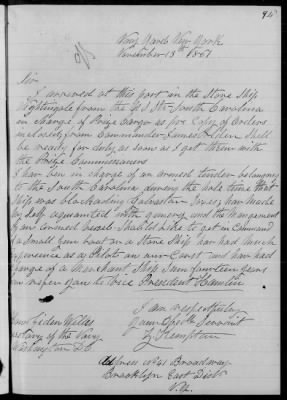 94
No
Navy Yard New York
November 13th 1861
Sir
I arrived at this port in the Store Ship
Nightingale from the U.S. Str South Carolina
in charge of Prize Cargo as per Copy of Orders
inclosed from Commander James Alden, shall
be ready for duty as soon as I get thru with
the Prize Commissioners
I have ben in charge of an armed tender belonging
to the South Carolina during the hole time that
Ship was blockading Galveston Texas, has made
my self aquanted with gunnery and the mangement
of an armed vessel Should like to get in Command
of a Small Gun boat or a Store Ship, has had much
experience as a Pilot on our Coast and has had
charge of a Merchant Ship Sum fourteen years
can refer you to Vice President Hamlin
I am respectfully
your Obdt Servant
Hon Gideon Welles
Secretary of the Navy
Washington D.C.
Address No 241 Broadway
Brooklyn East Dist
N.Y.